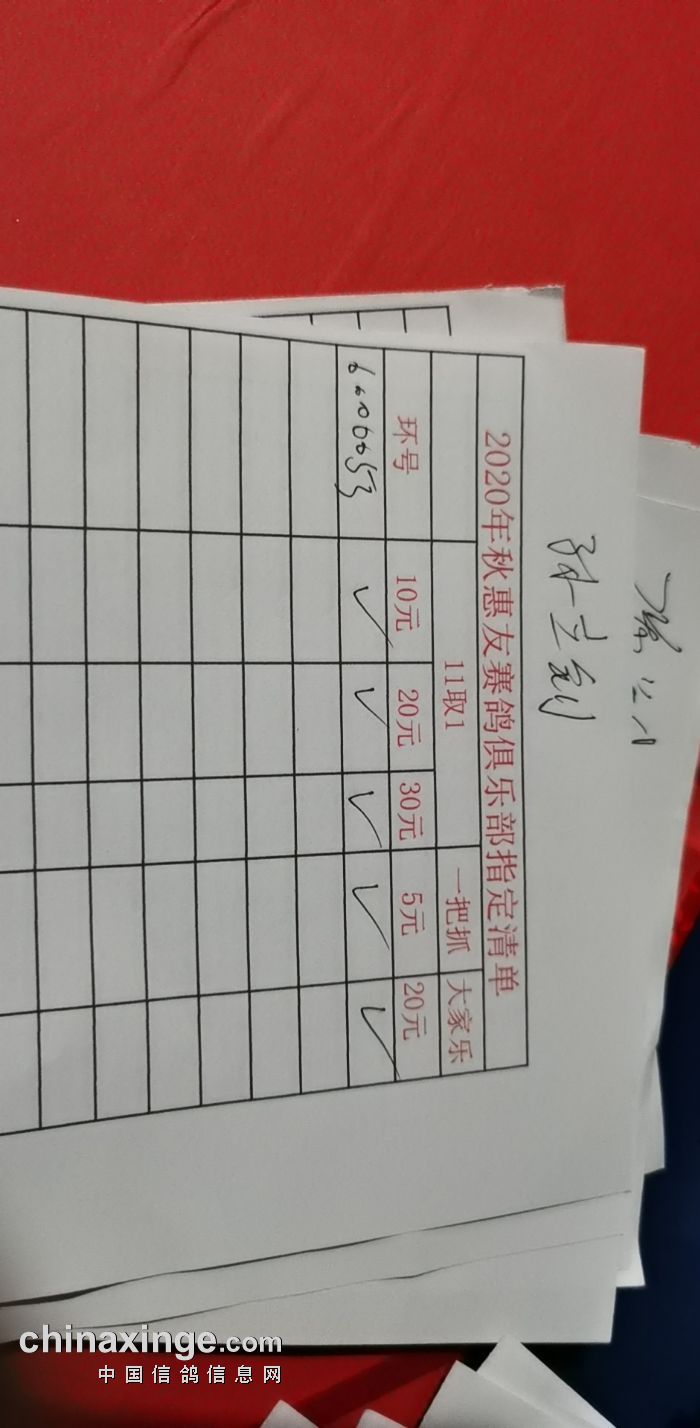 2020年秋惠友赛鸽俱乐部指定清单
11取1 一把抓 大家乐
环号 10元 20元 30元 5元 20元
✓ ✓ ✓ ✓ ✓
chinaxinge.com
中国信鸽信息网